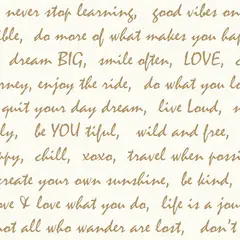 never stop learning, good vibes on
ible, do more of what makes you hap
dream BIG, smile often, LOVE,
rney, enjoy the ride, do what you lo
quit your day dream, live Loud,
ly, be YOU tiful, wild and free,
ppy, chill, xoxo, travel when possi
create your own sunshine, be kind,
ve & love what you do, life is a jou
not all who wander are lost, don't